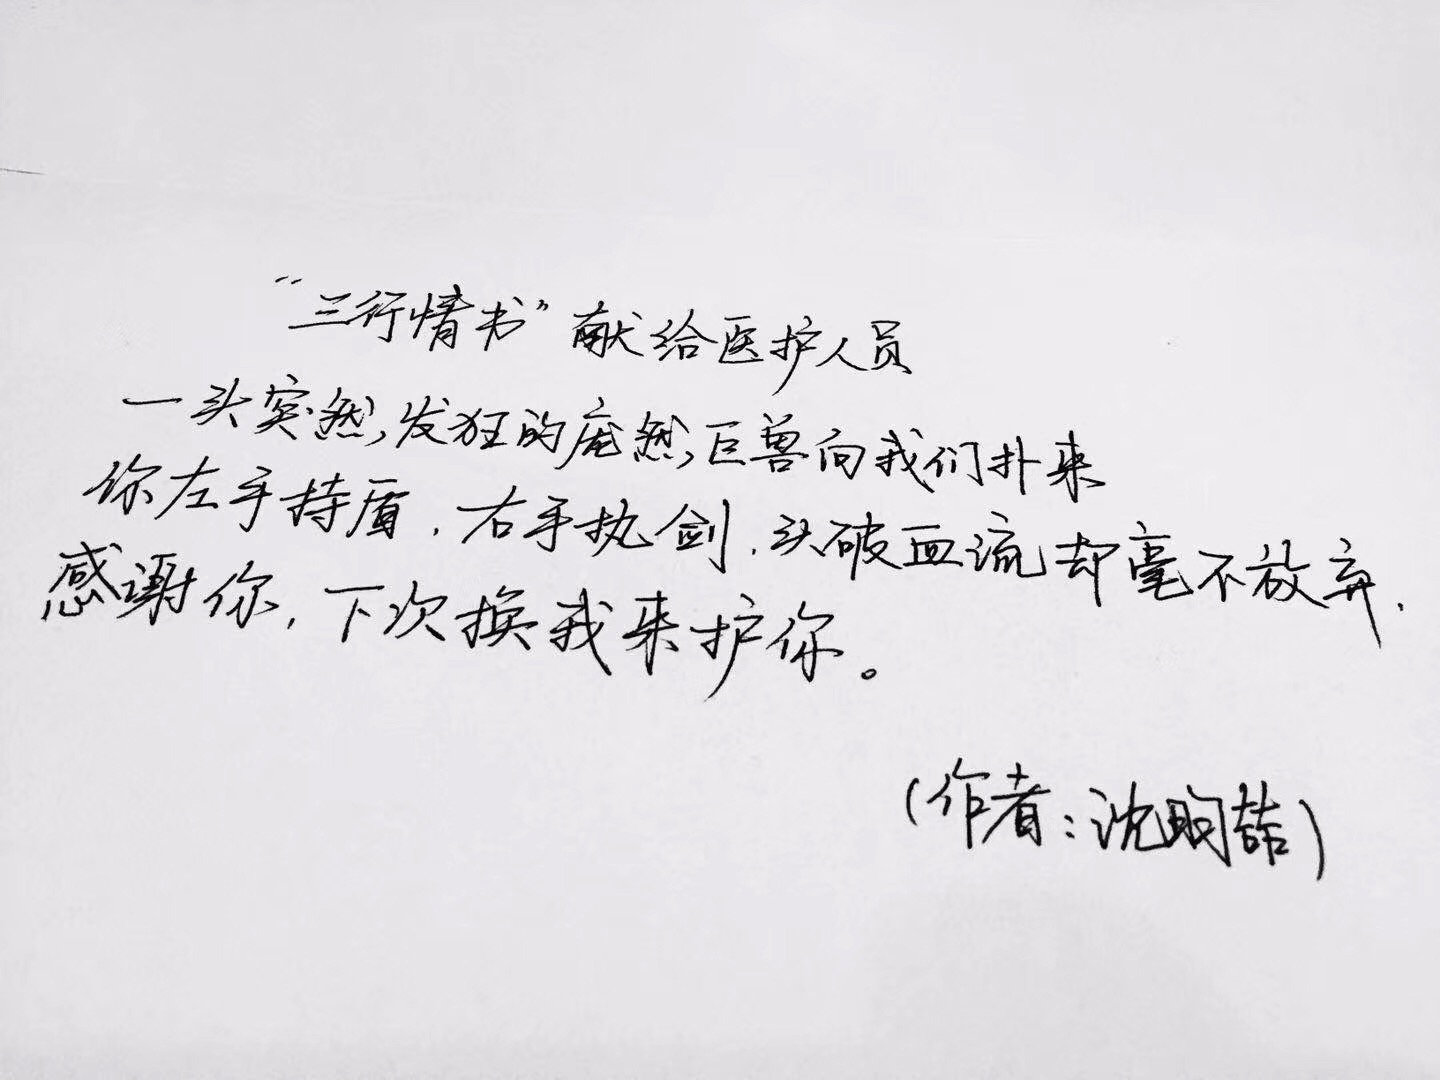 “三行情书”献给医护人员
一头突然发狂的庞然巨兽向我们扑来
你左手持盾，右手执剑，头破血流却毫不放弃，
感谢你，下次换我来护你。
(作者：沈昀喆)